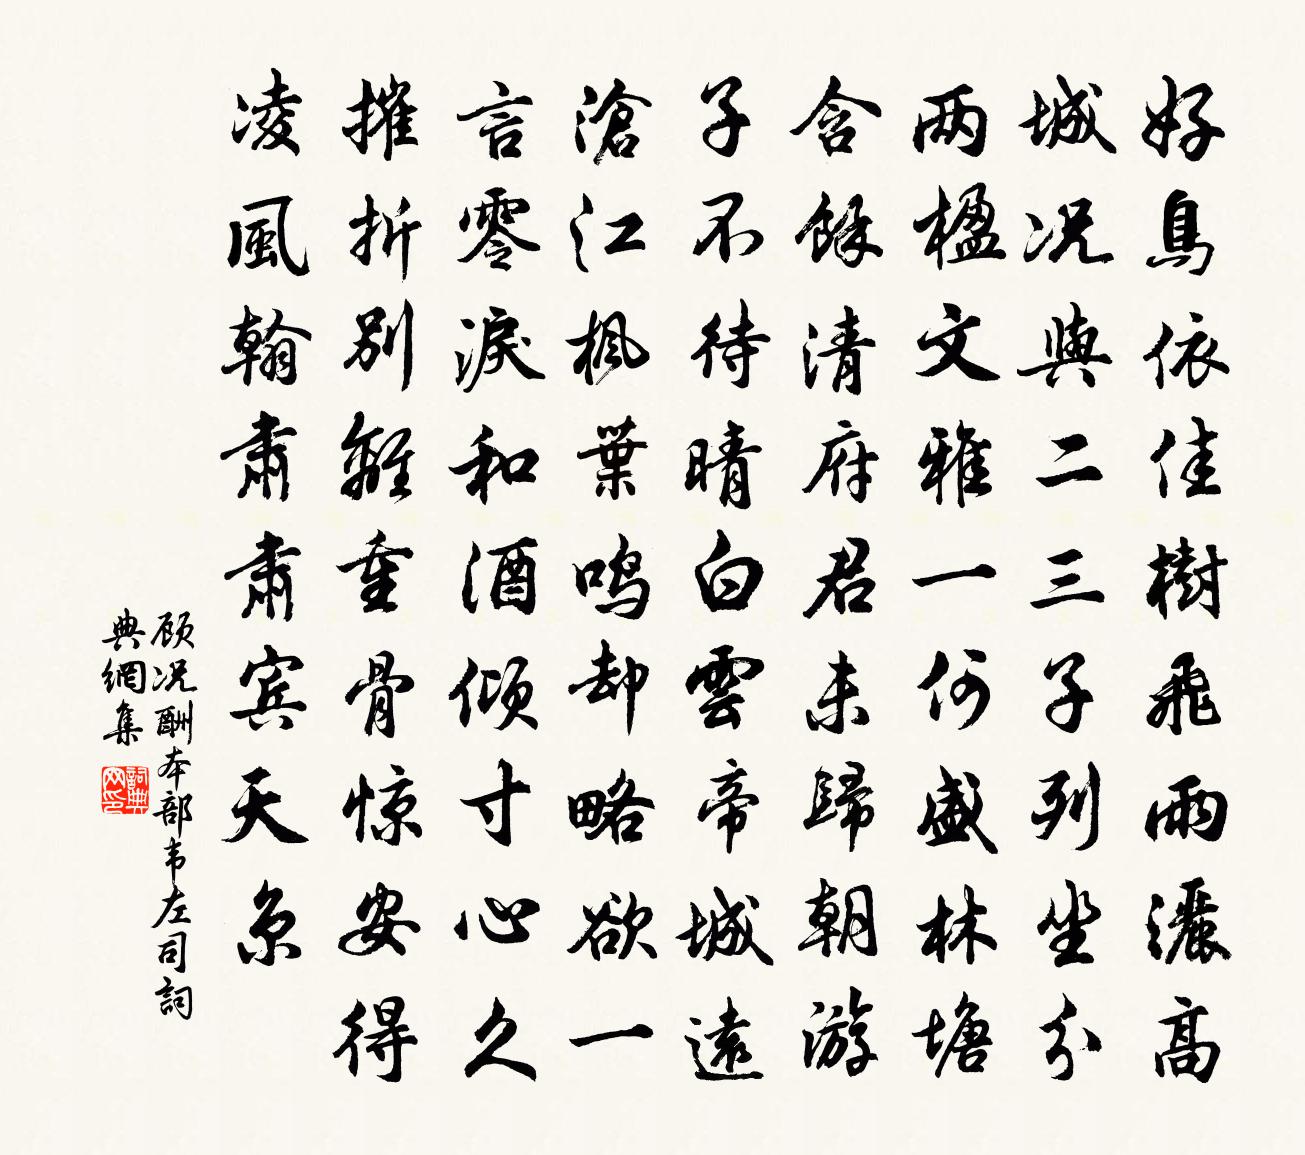 好鳥依佳樹飛雨灑高
城况與二三子列坐分
两楹文雅一何盛林塘
含餘清府君未歸朝游
子不待晴白雲帝城遠
滄江楓葉鸣却略欲一
言零淚和酒傾寸心久
摧折别離重骨惊安得
凌風翰肅肅宾天京
顾况酬本部韦左司詞
典網集
詞典
网印